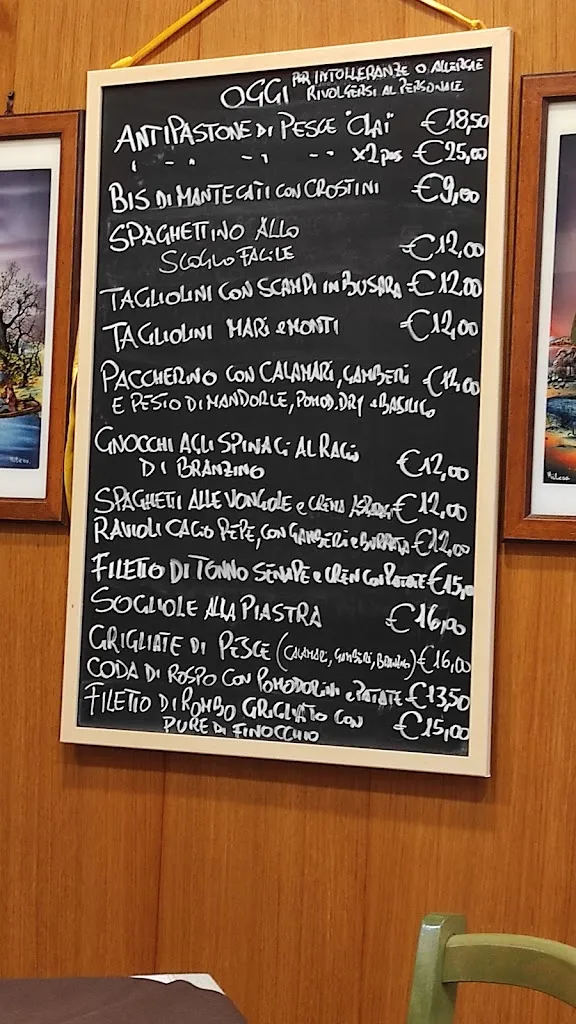 PER INTOLLERANZE O ALLERGIE
OGGI RIVOLGERSI AL PERSONALE
ANTIPASTONE DI PESCE "CIAI" €18,50
" " " " x2 pers €25,00
BIS DI MANTECATI CON CROSTINI €9,00
SPAGHETTINO ALLO
SCOGLIO FACILE €12,00
TAGLIOLINI CON SCAMPI IN BUSARA €12,00
TAGLIOLINI MARI e MONTI €12,00
PACCHERINO CON CALAMARI, GAMBERI €12,00
E PESTO DI MANDORLE, POMOD. DRY e BASILICO
GNOCCHI AGLI SPINACI AL RAGÙ
DI BRANZINO €12,00
SPAGHETI ALLE VONGOLE e CREMA €12,00
RAVIOLI CACIO PEPE, CON GAMBERI e BURRATA €12,00
FILETTO DI TONNO SENAPE e CREN CON PATATE €15,00
SOGLIOLE ALLA PIASTRA €16,00
GRIGLIATE DI PESCE (CALAMARI, GAMBERI, BRANZINO) €16,00
CODA DI ROSPO CON POMODORINI e PATATE €13,50
FILETTO DI ROMBO GRIGLIATO CON
PURE DI FINOCCHIO €15,00